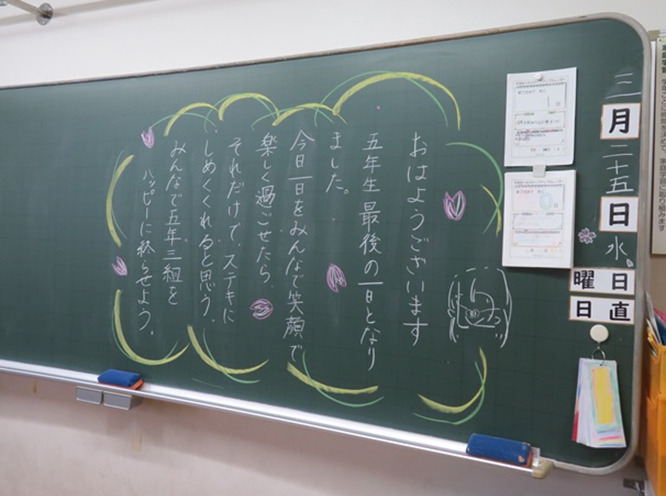 三月二十五日水
曜日
日直
おはようございます
五年生最後の一日となり
ました。
今日一日をみんなで笑顔で
楽しく過ごせたら、
それだけで、ステキに
しめくくれると思う。
みんなで五年三組を
ハッピーに終らせよう。